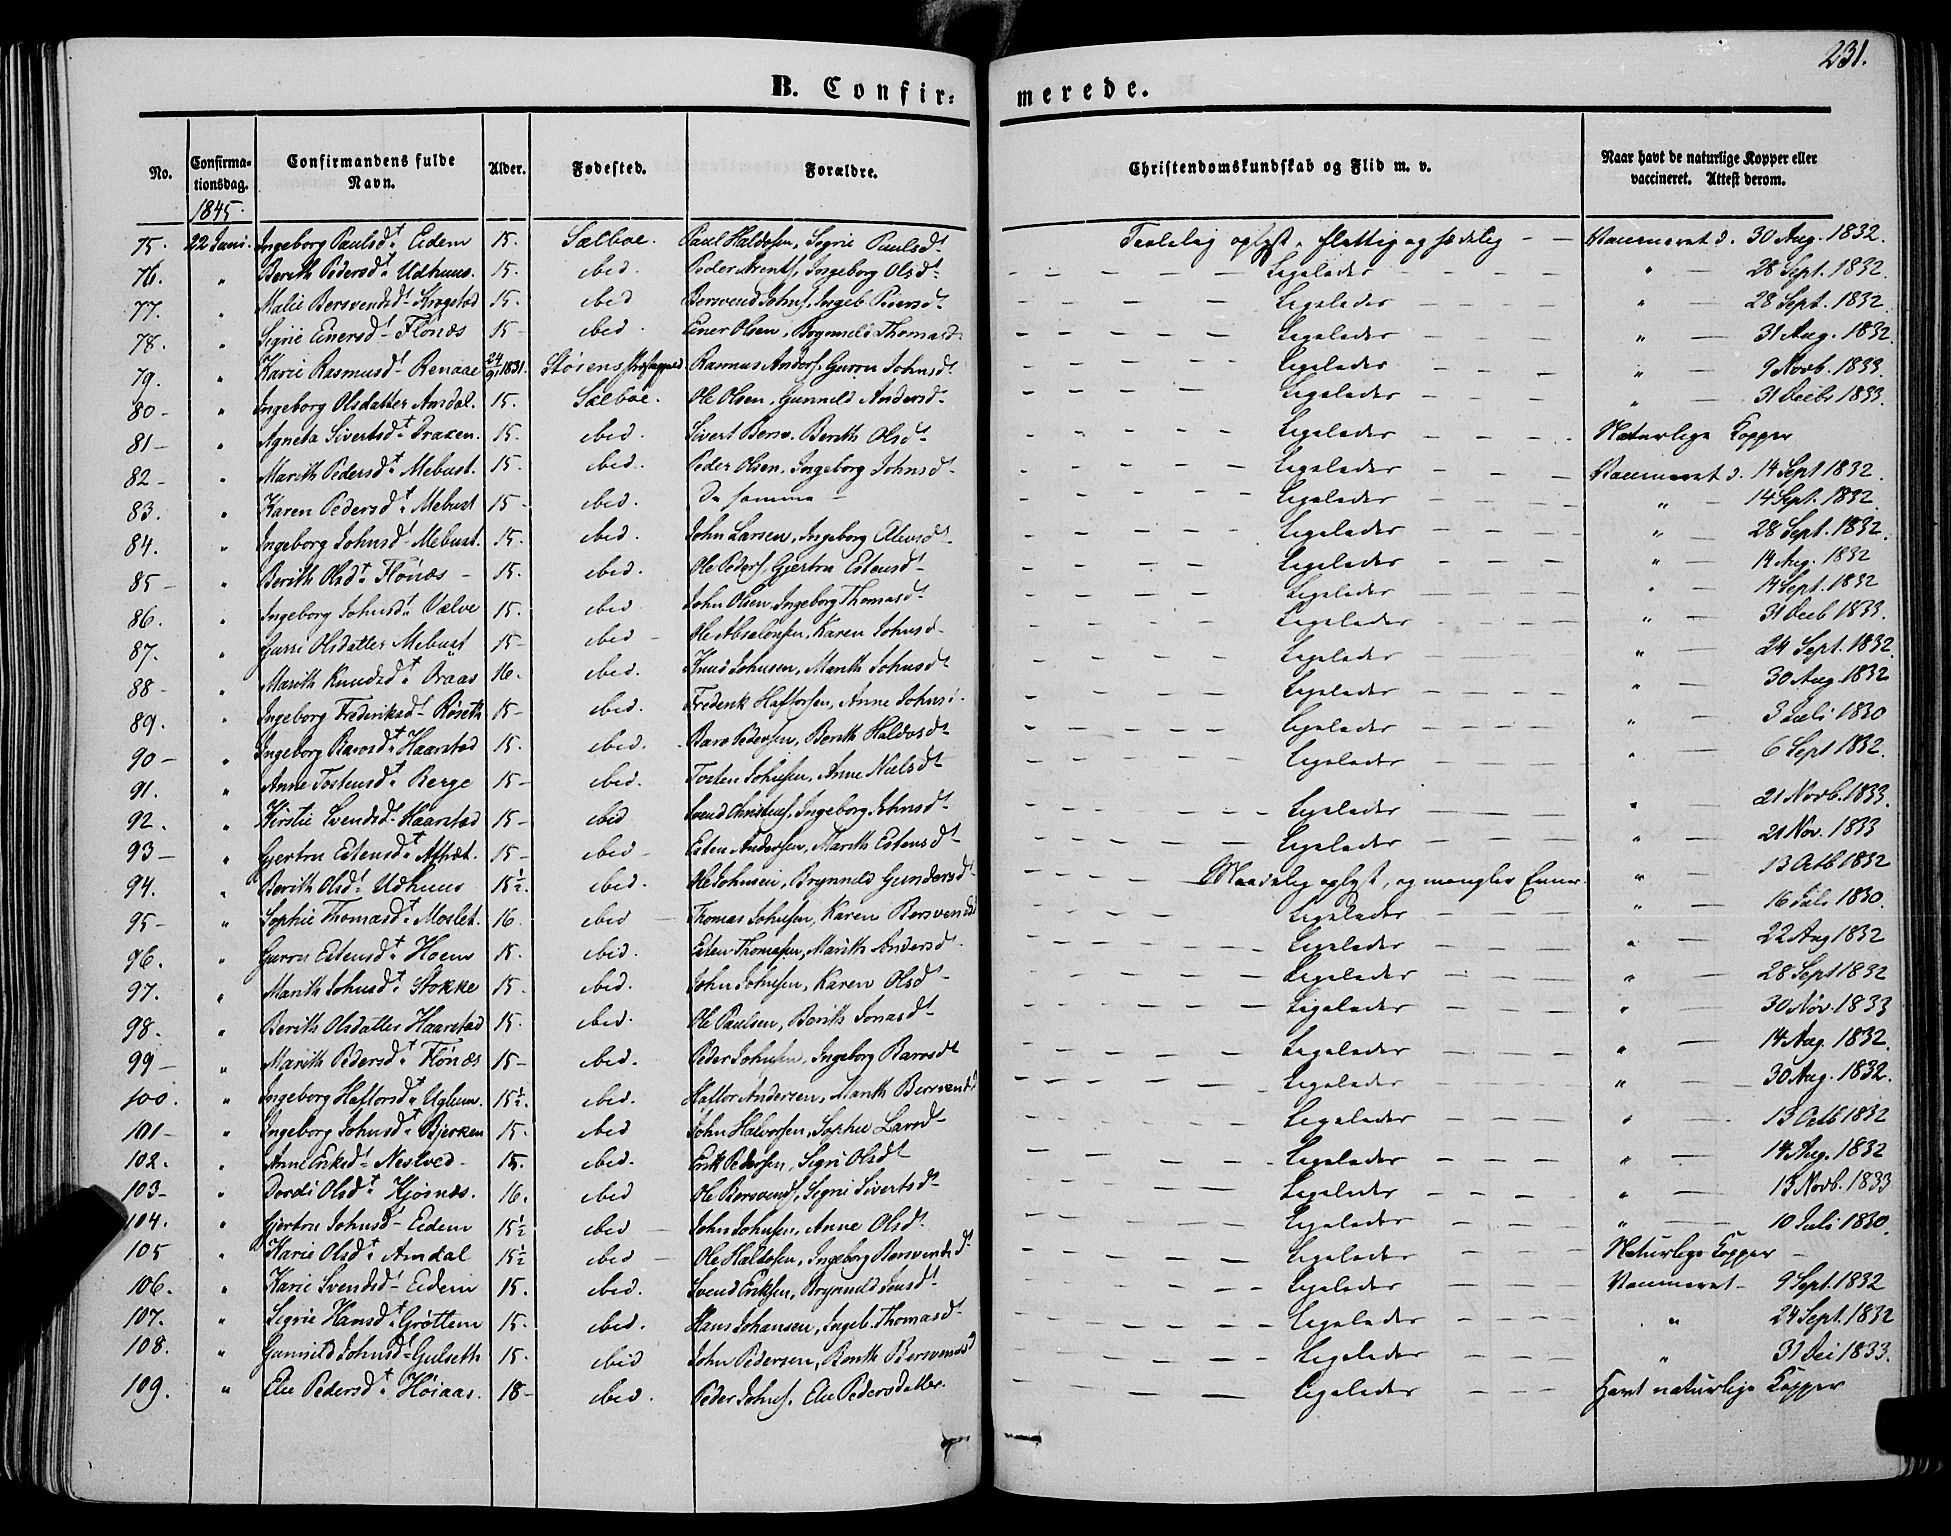 231.
B. Confir= merede.
No. Confirma-tionsdag. Confirmandens fulde Navn. Alder. Fødested. Forældre. Christendomskundskab og Flid m. v. Naar havt de naturlige Kopper eller vaccineret. Attest derom.
1845.
75. 22 Juni. Ingeborg Paulsdt. Eidem 15. Sælboe. Paul Haldosen, Sigrie Paulsdt oplyst, flittig og sædelig — — Vaccineret d. 30 Aug. 1832.
76. " Berith Pedersdt. Udhuus. 15. ibid. Peder Arentf., Ingeborg Olsdt. Ligeledes " — 28 Sept. 1832.
77. " Malie Bersvendsdt. 15. ibid Bersvend Johnf. Ingeb. Pedersdt. Ligeledes " — 28 Sept. 1832
78. " Sigrie Einersdt. Flönæs 15 - ibid. Einer Olsen, Brynnild Thomasd. Ligeledes " — 31 Aug. 1832.
79. " Karie Rasmusdt. Renaae 24/9 1831. Størens Præstegjeld. Rasmus Andersf. Guru Johnsdt Ligeledes " — 9 Novb. 1833.
80 - " Ingeborg Olsdatter Amdal. 15. Sælboe. Ole Olsen, Gunnild Andersd. Ligeledes " — 31 Decbr 1833.
81 - " Agneta Sivertsdt. Draxen. 15. ibid. Sivert Bersv. Berith Olsdt. Ligeledes Naturlige Kopper
82 - " Marith Pedersdt. Mebust. 15. ibid. Peder Olsen, Ingeborg Johnsdt. Ligeledes Vaccineret d. 14 Sept 1832.
83. " Karen Pedersdt. Mebust 15 - ibid. De samme — Ligeledes " — 14 Sept. 1832
84. " Ingeborg Johnsdt. Mebust. 15. ibid. John Larsen, Ingeborg Ligeledes " — 28 Sept. 1832.
85 - " Berith Olsdt. Flönæs - 15. ibid. Ole Pedersf. Gjertru Estensdt. Ligeledes " — 14 Aug. 1832
86. " Ingeborg Johnsdt. Vælve 15. ibid John Olsen, Ingeborg Thomasdt. Ligeledes " — 14 Sept. 1832
87. " Guru Olsdatter Mebust 15 - ibid - Ole Absalonsen, Karen Johnsd. Ligeledes " — 31 Decb 1833.
88 - " Marith Knudsdt. Draas 16. ibid. Knud Johnsen, Marith Johnsdt Ligeledes " — 24 Sept. 1832.
89. " Ingeborg Frederiksdt. Röseth 15 - ibid. Frederik Haftorsen, Anne Johnsd. Ligeledes " — 30 Aug. 1832
90 - " Ingeborg Baardsdt. Haarstad 15. ibid. Baro Pedersen, Berith Haldosdt Ligeledes " — 3 Juli 1830
91. " Anne Tostensdt. Berge 15 - ibid. Tosten Johnsen, Anne Nielsdt Ligeledes " — 6 Sept 1832.
92. " Kirstie Svendsdt. Haarstad 15 - ibid Svend Christenf. Ingeborg Johnsdt. Ligeledes " — 21 Novb. 1833.
93 - " Gjertru Estensdt. 15 - ibid - Esten Andersen, Marith Estensdt Ligeledes " — 21 Nov. 1833
94. " Berith Olsdt. Udhuus 15½. ibid. Ole Johnsen, Brynnild Gundersdt. Maadelig oplyst, og mangler Evner. " — 13 Octb 1832
95 - " Sophie Thomasdt. Moslet. 16. ibid - Thomas Johnsen, Karen Bersvendsd Ligeledes " — 16 Juli 1830.
96. " Guru Estensdt. Hoem 15. ibid. Esten Thomesen, Marith Andersdt. Ligeledes " — 22 Aug 1832
97. " Marith Johnsdt. Stokke 15. ibid. John Johnsen, Karen Olsdt - Ligeledes " — 28 Sept 1832
98. " Berith Olsdatter Haarstad 15. ibid. Ole Paulsen, Berith Jonasdt. Ligeledes " — 30 Nov. 1833
99 - " Marith Pedersdt. Flönæs 15 - ibid. Peder Johnsen, Ingeborg Barosdt Ligeledes " — 14 Aug. 1832.
100. " Ingeborg Haftorsdt. Uglum. 15½. ibid. Haftor Andersen, Marith Bersvendsd Ligeledes " — 30 Aug. 1832.
101 - " Ingeborg Johnsdt. Bjerken 15. ibid John Halvorsen, Sophie Larsdt. Ligeledes " — 13 Octb 1832
102. " Anne Eriksdt. Nestved. 15. ibid. Erik Pedersen, Sigri Olsdt Ligeledes " — 14 Aug. 1832
103 - " Dordi Olsdt. Kjösnæs. 16. ibid Ole Bersvendf, Sigrie Sivertsdt. Ligeledes " — 13 Novb. 1833
104. " Gjertru Johnsdt. Eidem 15½ ibid — John Johnsen, Anne Olsdt. Ligeledes " — 10 Juli 1830.
105 " Karie Olsdt. Amdal 15½ ibid — Ole Haldosen, Ingeborg Bersvendsdt. Ligeledes Naturlige Kopper —
106. " Karie Svendsdt. Eidem 15. ibid. Svend Eriksen, Brynnild Jensdt. Ligeledes Vaccineret — 9 Sept. 1832
107. " Sigrie Hansdt. Gröttem 15. ibid. Hans Johansen, Ingeb. Thomasdt. Ligeledes " 24 Sept. 1832
108. " Gunnild Johnsdt. Gulseth 15. ibid John Pedersen, Berith Bersvendsd Ligeledes " 31 1833.
109. " Elie Pedersdt. Höiaas. 18 - ibid. Peder Johnsf. Elie Pedersdatter. Ligeledes Havt naturlige Kopper